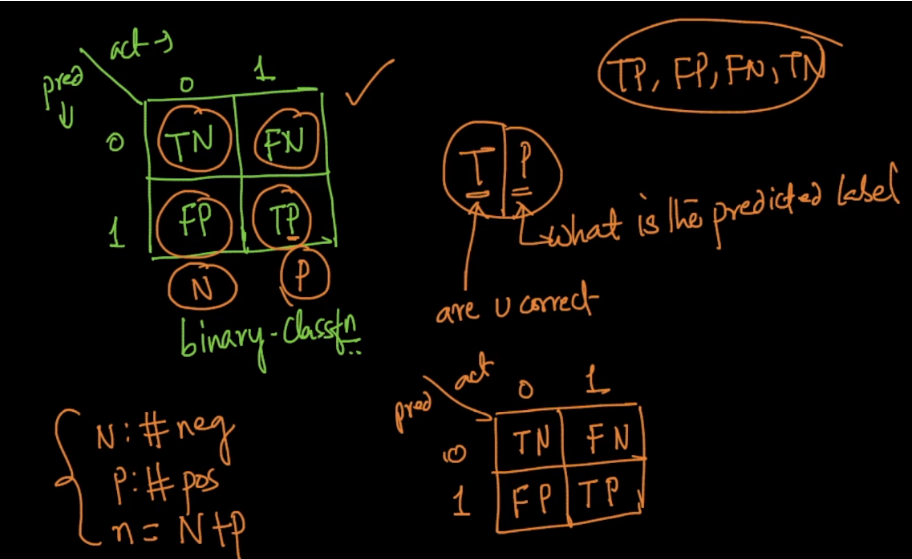 act→
pred
0 1
0 TN FN
1 FP TP
N P
binary-classfn
TP, FP, FN, TN
T P
what is the predicted label
are u correct
N: # neg
P: # pos
n = N+P
act
pred
0 1
0 TN FN
1 FP TP